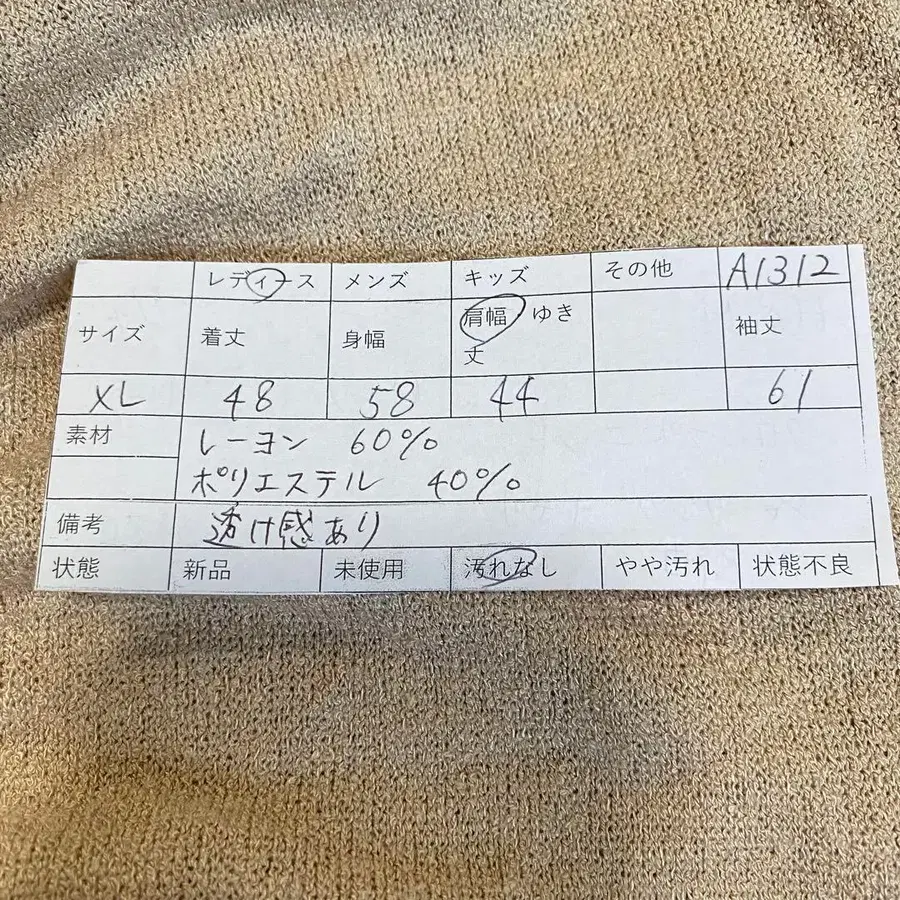 レディース メンズ キッズ その他 A1312
サイズ 着丈 身幅 肩幅 ゆき丈 袖丈
XL 48 58 44 61
素材 レーヨン 60%
ポリエステル 40%
備考 透け感あり
状態 新品 未使用 汚れなし やや汚れ 状態不良